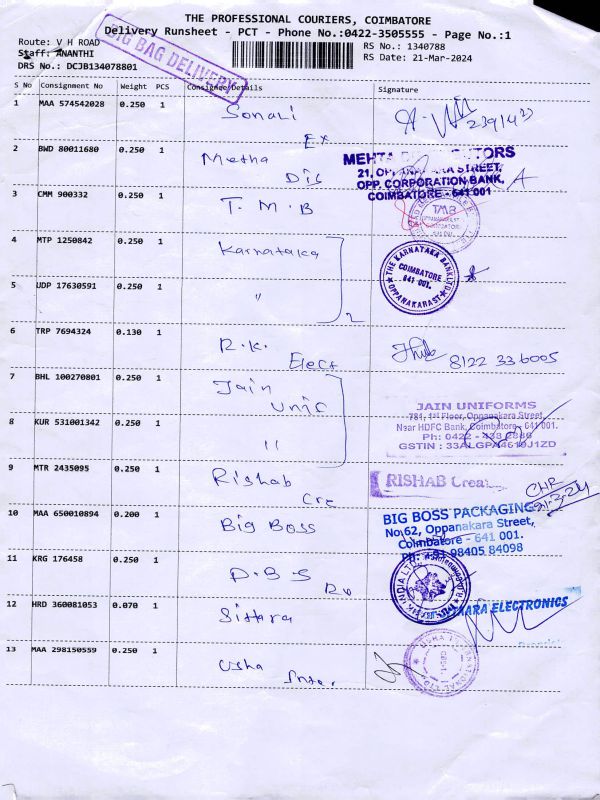 THE PROFESSIONAL COURIERS, COIMBATORE
Delivery Runsheet - PCT - Phone No.:0422-3505555 - Page No.:1
Route: V H ROAD
Staff: ANANTHI
DRS No.: DCJB134078801
BIG BAG DELIVERY
RS No.: 1340788
RS Date: 21-Mar-2024
S No Consignment No Weight PCS Consignee Details Signature
1 MAA 574542028 0.250 1 Sonali Ex
2 BWD 80011680 0.250 1 Metha Dis
MEHTA
21, STREET,
OPP. CORPORATION BANK,
COIMBATORE - 641 001
3 CMM 900332 0.250 1 T.M.B
TMB
4 MTP 1250842 0.250 1 Karnataka
THE KARNATAKA BANK LTD
COIMBATORE
641 001.
OPPANAKARA ST
5 UDP 17630591 0.250 1 "
2
6 TRP 7694324 0.130 1 R.K. Elect 8122 336005
7 BHL 100270801 0.250 1 Jain Unic
JAIN UNIFORMS
781, 1st Floor, Oppanakara Street,
Near HDFC Bank, Coimbatore - 641 001.
Ph: 0422
GSTIN : 33ALGPA4619J1ZD
8 KUR 531001342 0.250 1 "
9 MTR 2435095 0.250 1 Rishab Cre
RISHAB
10 MAA 650010894 0.200 1 Big Boss
BIG BOSS PACKAGING
No.62, Oppanakara Street,
Coimbatore - 641 001.
Ph: +91 98405 84098
11 KRG 176458 0.250 1 D.B.S
12 HRD 360081053 0.070 1 Sittara
ELECTRONICS
13 MAA 298150559 0.250 1 Usha Inter